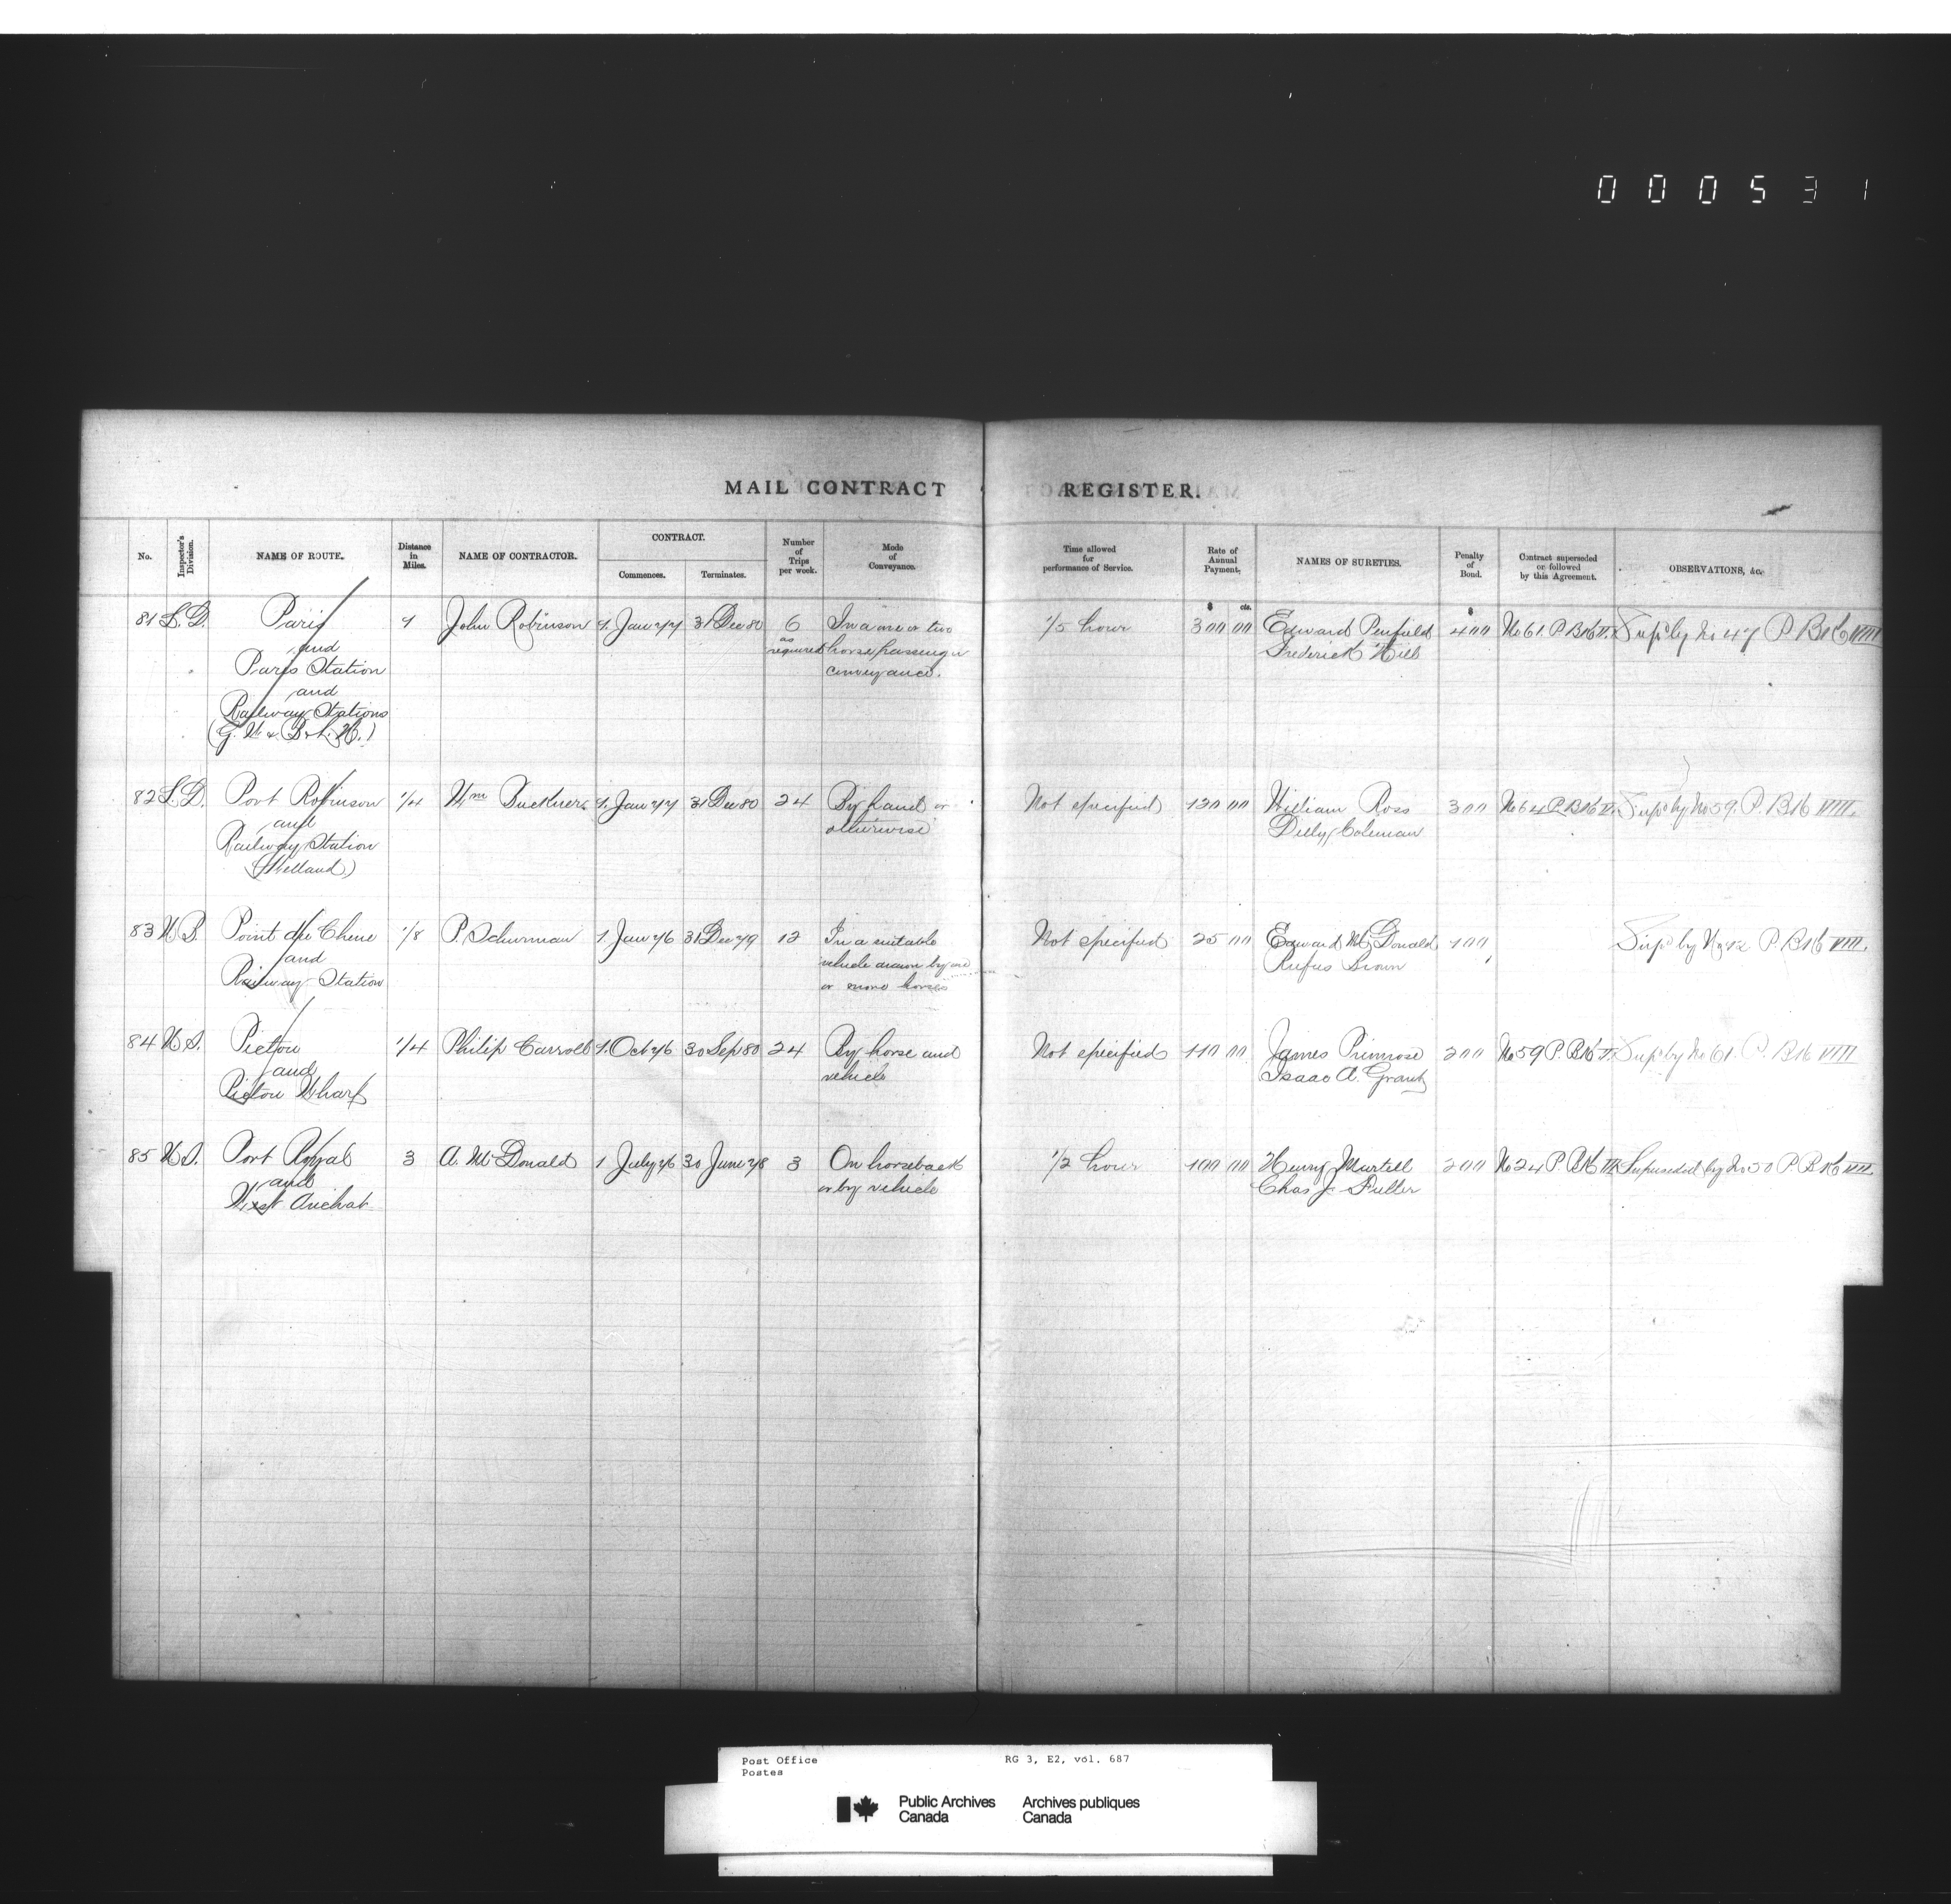 000531
MAIL CONTRACT REGISTER.
No. Inspector's Division. NAME OF ROUTE. Distance in Miles. NAME OF CONTRACTOR. CONTRACT. Commences. Terminates. Number of Trips per week. Mode of Conveyance. Time allowed for performance of Service. Rate of Annual Payment. $ cts. NAMES OF SURETIES. Penalty of Bond. $ Contract superseded or followed by this Agreement. OBSERVATIONS, &c.
81 L.D. Paris 1 John Robinson 1. Jan 77 31 Dec 80 6 In a one or two 1/5 hour 300 00 Edward Penfield 400 No 61. P. Bk V. Sup'd by No 47 P. Bk VIII
and as required horse passenger Frederick Hill
Paris Station conveyance.
and
Railway Stations
(G. W. & B. & L. H.)
82 L.D. Port Robinson 1/4 Wm Buckner 1. Jan 77 31 Dec 80 24 By hand or Not specified 120 00 William Ross 300 No 64 P. Bk V. Sup'd by No 59. P. Bk VIII.
and otherwise Coleman
Railway Station
(Welland)
83 N.B. Point du Chene 1/8 P. Schurman 1. Jan 76 31 Dec 79 12 In a suitable Not specified 25 00 Edward McDonald 100 Sup'd by No 42 P. Bk VIII.
and vehicle drawn by one Rufus Brown
Railway Station or more horses
84 N.S. Pictou 1/4 Philip Carroll 1. Oct 76 30 Sep 80 24 By horse and Not specified 110 00 James Primrose 200 No 59 P. Bk V. Sup'd by No 61. P. Bk VIII
and vehicle Isaac A. Grant
Pictou Wharf
85 N.S. Port Royal 3 A. McDonald 1 July 76 30 June 78 3 On horseback 1/2 hour 100 00 Henry Martell 200 No 24 P. Bk III Superseded by No 50 P. Bk VII.
and or by vehicle Chas J. Fuller
West Arichat
Post Office RG 3, E2, vol. 687
Postes
Public Archives Archives publiques
Canada Canada